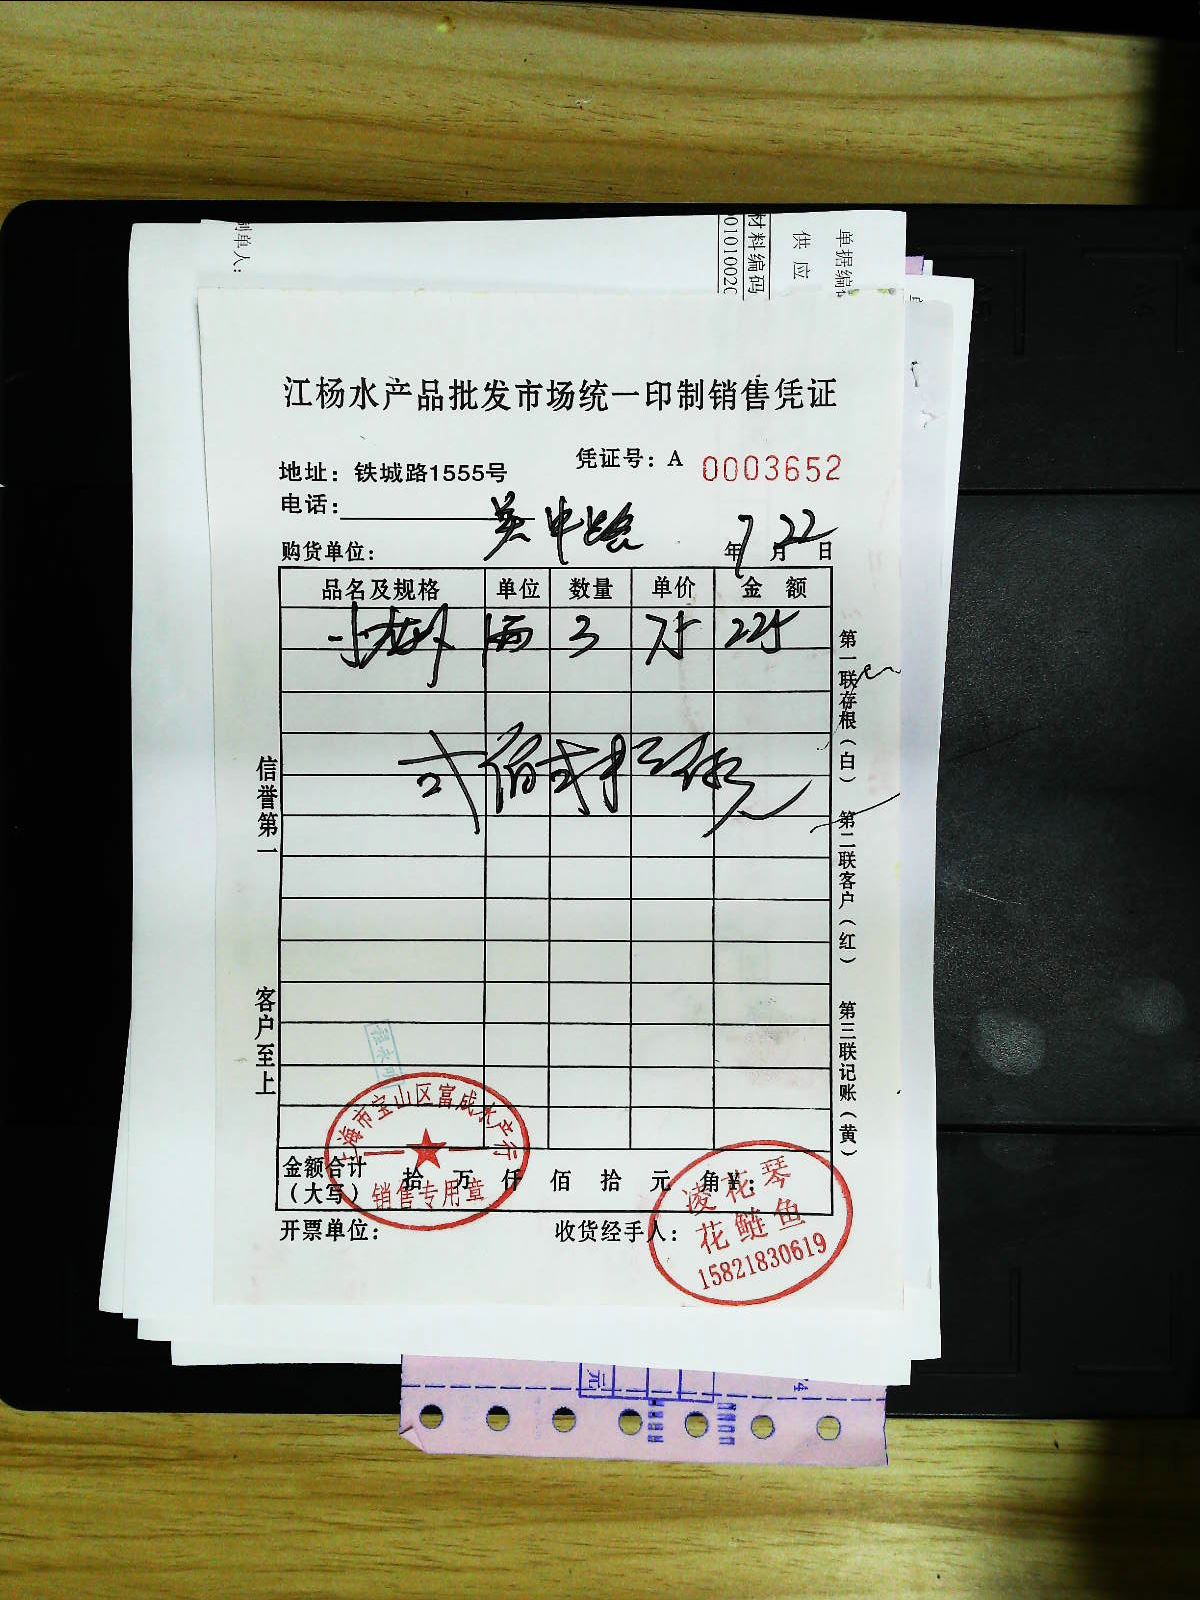 制单人：
材料编码
供应
单据编
江杨水产品批发市场统一印制销售凭证
地址：铁城路1555号
凭证号：A 0003652
电话：
购货单位：吴中路
年7月22日
品名及规格 单位 数量 单价 金额
3 75 225
金额合计（大写） 拾 万 仟 佰 拾 元 角 ¥：
开票单位：
收货经手人：
信誉第一
客户至上
第一联存根（白）
第二联客户（红）
第三联记账（黄）
上海市宝山区富成水产行
销售专用章
凌花琴
花鲢鱼
15821830619
元